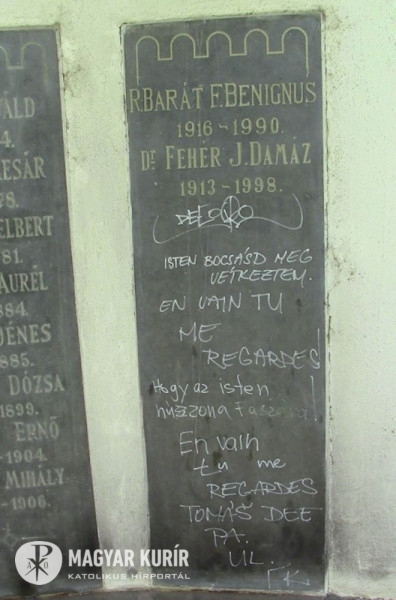 VÁLD
4.
ESÁR
78.
ELBERT
81.
AURÉL
884.
DÉNES
885.
DÓZSA
1899.
ERNŐ
-1904.
MIHÁLY
-1906.
R.BARÁT F.BENIGNUS
1916-1990.
Dr FEHÉR J.DAMÁZ
1913-1998.
ISTEN BOCSÁSD MEG
VÉTKEZTEM.
EN VAIN TU
ME
REGARDES!
Hogy az isten
húzzona
En vain
tu me
REGARDES
TOMÁŠ DEE
PA.
UL.
FK
MAGYAR KURÍR
KATOLIKUS HÍRPORTÁL